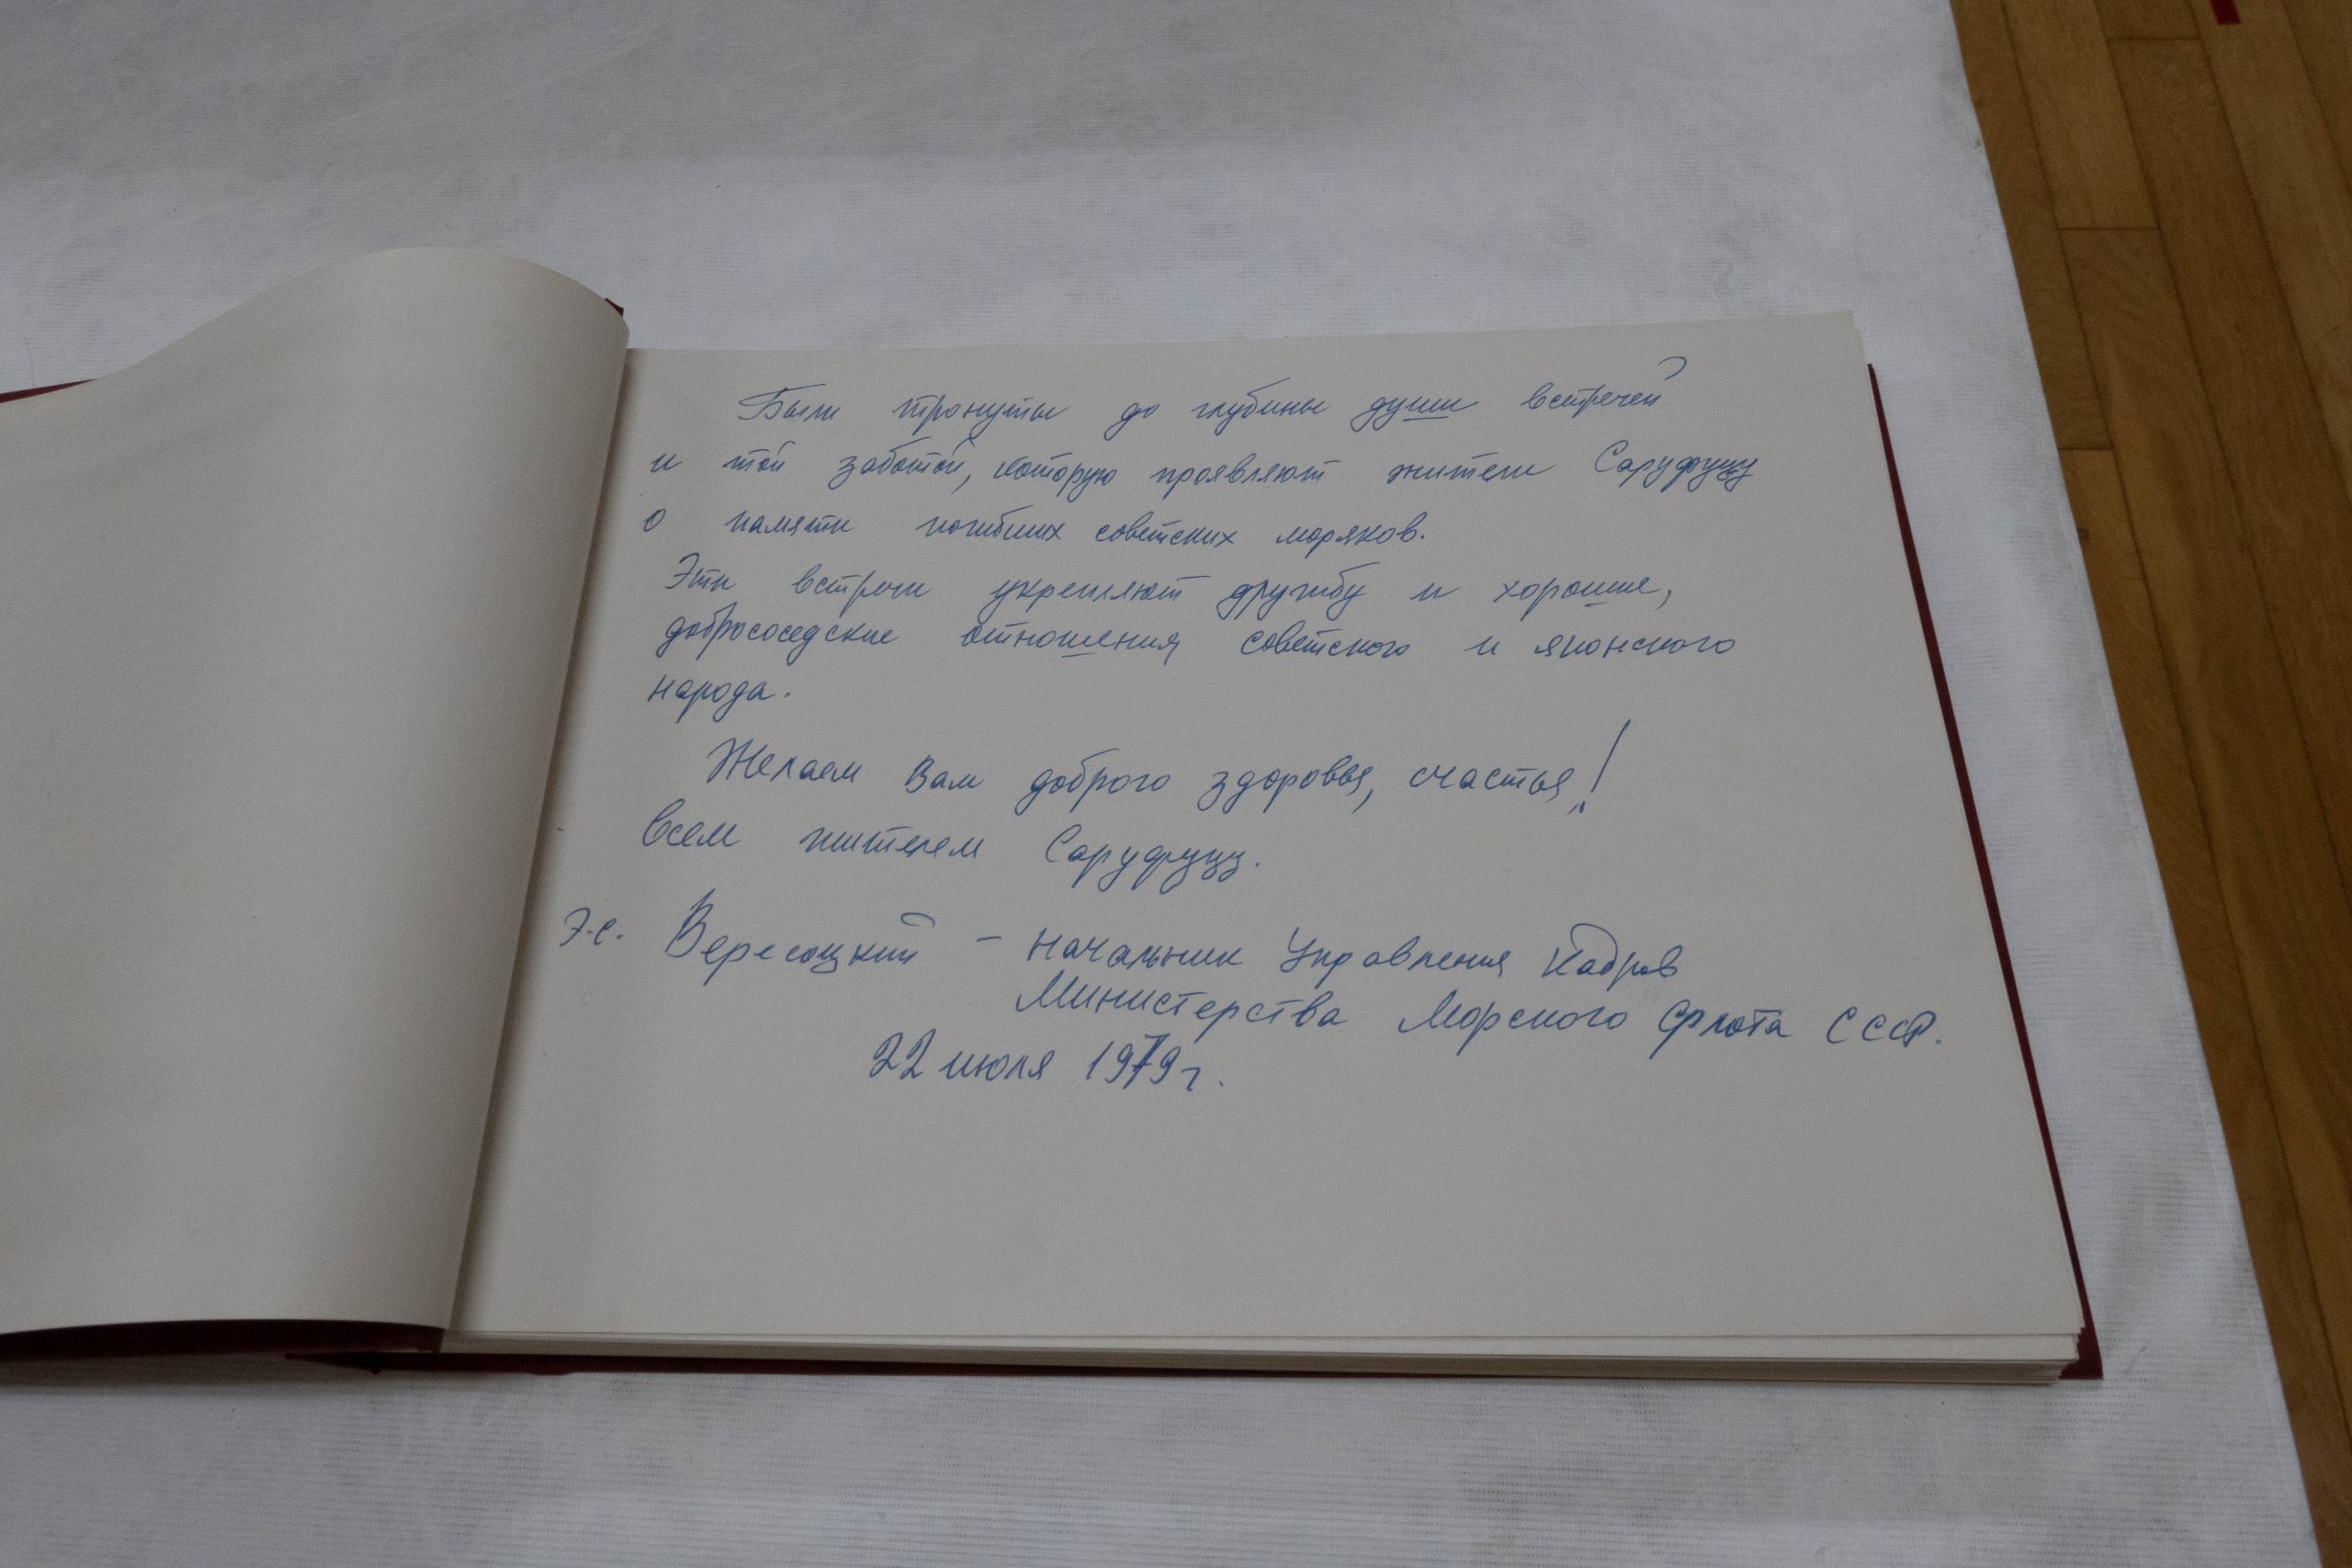 Были тронуты до глубины души встречей
и той заботой, которую проявляют жители Саруфуцу
о памяти погибших советских моряков.
Эти встречи укрепляют дружбу и хорошие,
добрососедские отношения советского и японского
народа.
Желаем Вам доброго здоровья, счастья!
всем жителям Саруфуцу.
Э.С. – начальник Управления Кадров
Министерства Морского Флота СССР.
22 июля 1979 г.